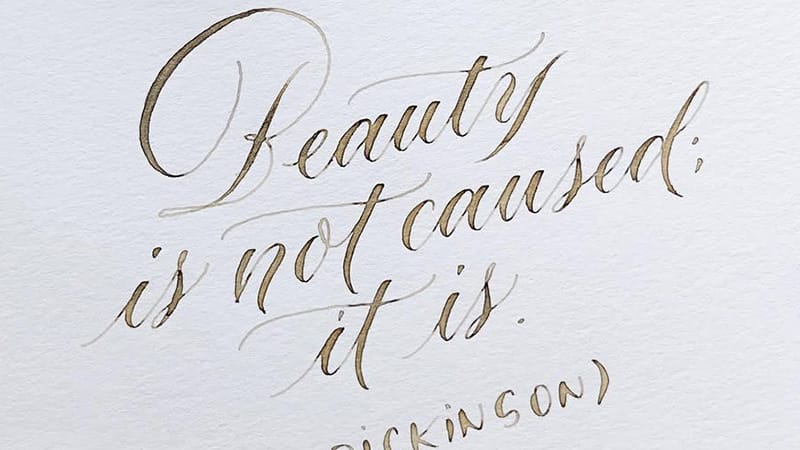 Beauty
is not caused;
it is.
DICKINSON)